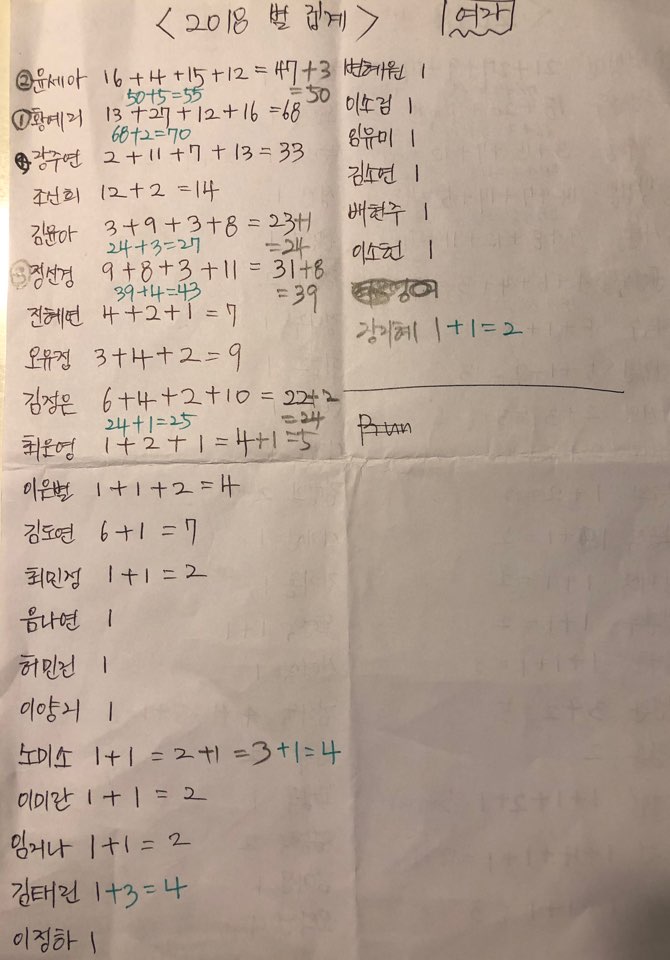 < 2018 별 립계 >
여자
② 윤세아 16+4+15+12=47+3
50+5=55 =50
① 황예리 13+27+12+16=68
68+2=70
강주연 2+11+7+13=33
조선희 12+2=14
김윤아 3+9+3+8=23+1
24+3=27 =24
③ 정선경 9+8+3+11=31+8
39+4=43 =39
전혜변 4+2+1=7
오유정 3+4+2=9
김정은 6+4+2+10=22+2
24+1=25 =24
최윤영 1+2+1=4+1=5
이은별 1+1+2=4
김도연 6+1=7
최민정 1+1=2
음나연 1
허민진 1
이양리 1
노미소 1+1=2+1=3+1=4
이미란 1+1=2
임거나 1+1=2
김태린 1+3=4
이정하 1
변혜원 1
이소검 1
임유미 1
김소연 1
배현주 1
이소현 1
강지혜 1+1=2
Run